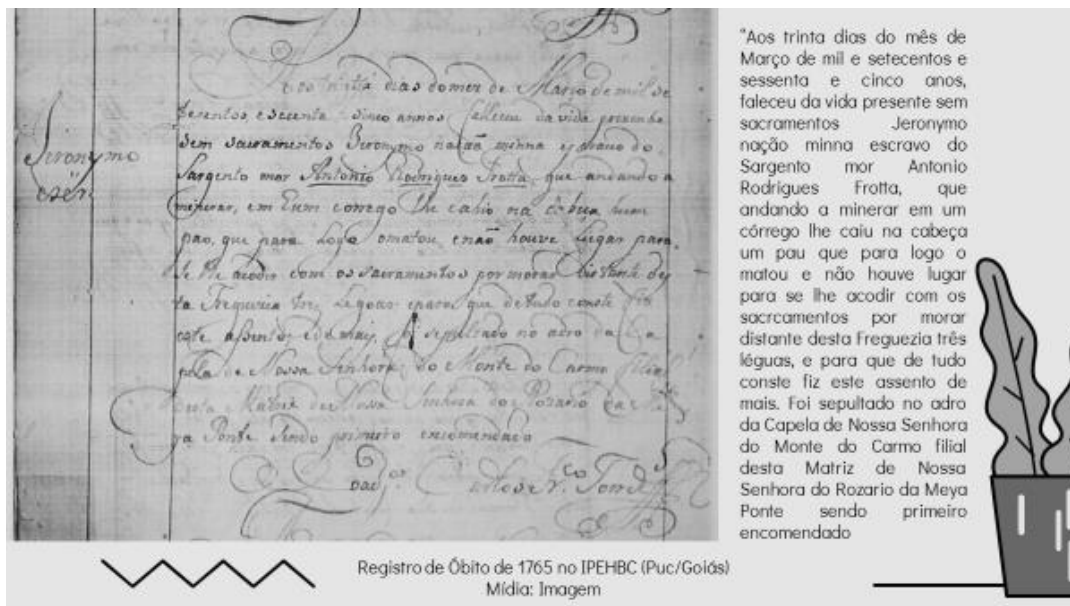 Jeronymo
escr.
Aos trinta dias do mes de Março de mil se
tecentos, e secenta e sinco annos falleceu da vida prezente
sem sacramentos Jeronymo nação minna escravo do
Sargento mor Antonio Rodrigues Frotta, que andando a
minerar, em hum corrego lhe cahio na cabeça hum
pao, que para logo o matou, e não houve lugar para
se lhe acodir com os sacramentos por morar distante des
ta Freguezia tres legoas e para que de tudo conste fiz
este assento, foi sepultado no adro da Ca
pela de Nossa Senhora do Monte do Carmo filial
desta Matriz de Nossa Senhora do Rozario da Me
ya Ponte sendo primeiro encomendado
"Aos trinta dias do mês de
Março de mil e setecentos e
sessenta e cinco anos,
faleceu da vida presente sem
sacramentos Jeronymo
nação minna escravo do
Sargento mor Antonio
Rodrigues Frotta, que
andando a minerar em um
córrego lhe caiu na cabeça
um pau que para logo o
matou e não houve lugar
para se lhe acodir com os
sacrcamentos por morar
distante desta Freguezia três
léguas, e para que de tudo
conste fiz este assento de
mais. Foi sepultado no adro
da Capela de Nossa Senhora
do Monte do Carmo filial
desta Matriz de Nossa
Senhora do Rozario da Meya
Ponte sendo primeiro
encomendado
Registro de Óbito de 1765 no IPEHBC (Puc/Goiás)
Mídia: Imagem